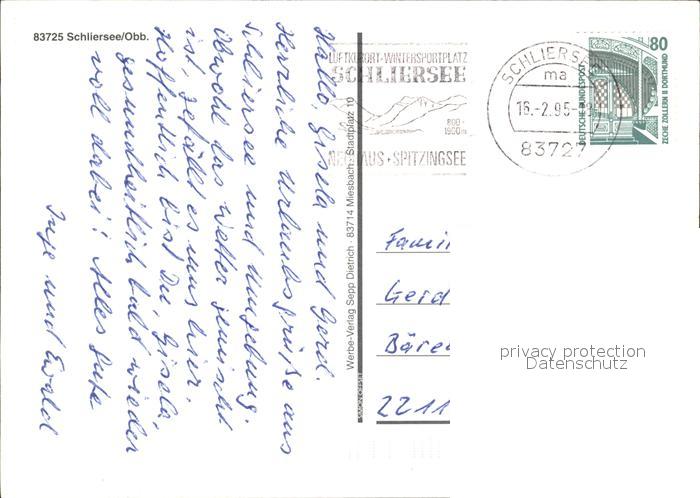 83725 Schliersee/Obb.
Hallo, Gisela und Gerd.
Herzliche Urlaubsgrüße aus
Schliersee und Umgebung.
Obwohl das Wetter gemischt
ist, gefällt es uns hier.
Hoffentlich bist Du, Gisela,
gesundheitlich bald wieder
voll dabei! Alles Gute
Inge und Ewald
Werbe-Verlag Sepp Dietrich · 83714 Miesbach · Stadtplatz 10
SIMON-OFFSET
LUFTKURORT-WINTERSPORTPLATZ
SCHLIERSEE
800-
1900m
NEUHAUS · SPITZINGSEE
SCHLIERSEE
ma
16.-2.95
83727
80
DEUTSCHE BUNDESPOST
ZECHE ZOLLERN II DORTMUND
Famil
Gerd
Bären
2211
privacy protection
Datenschutz